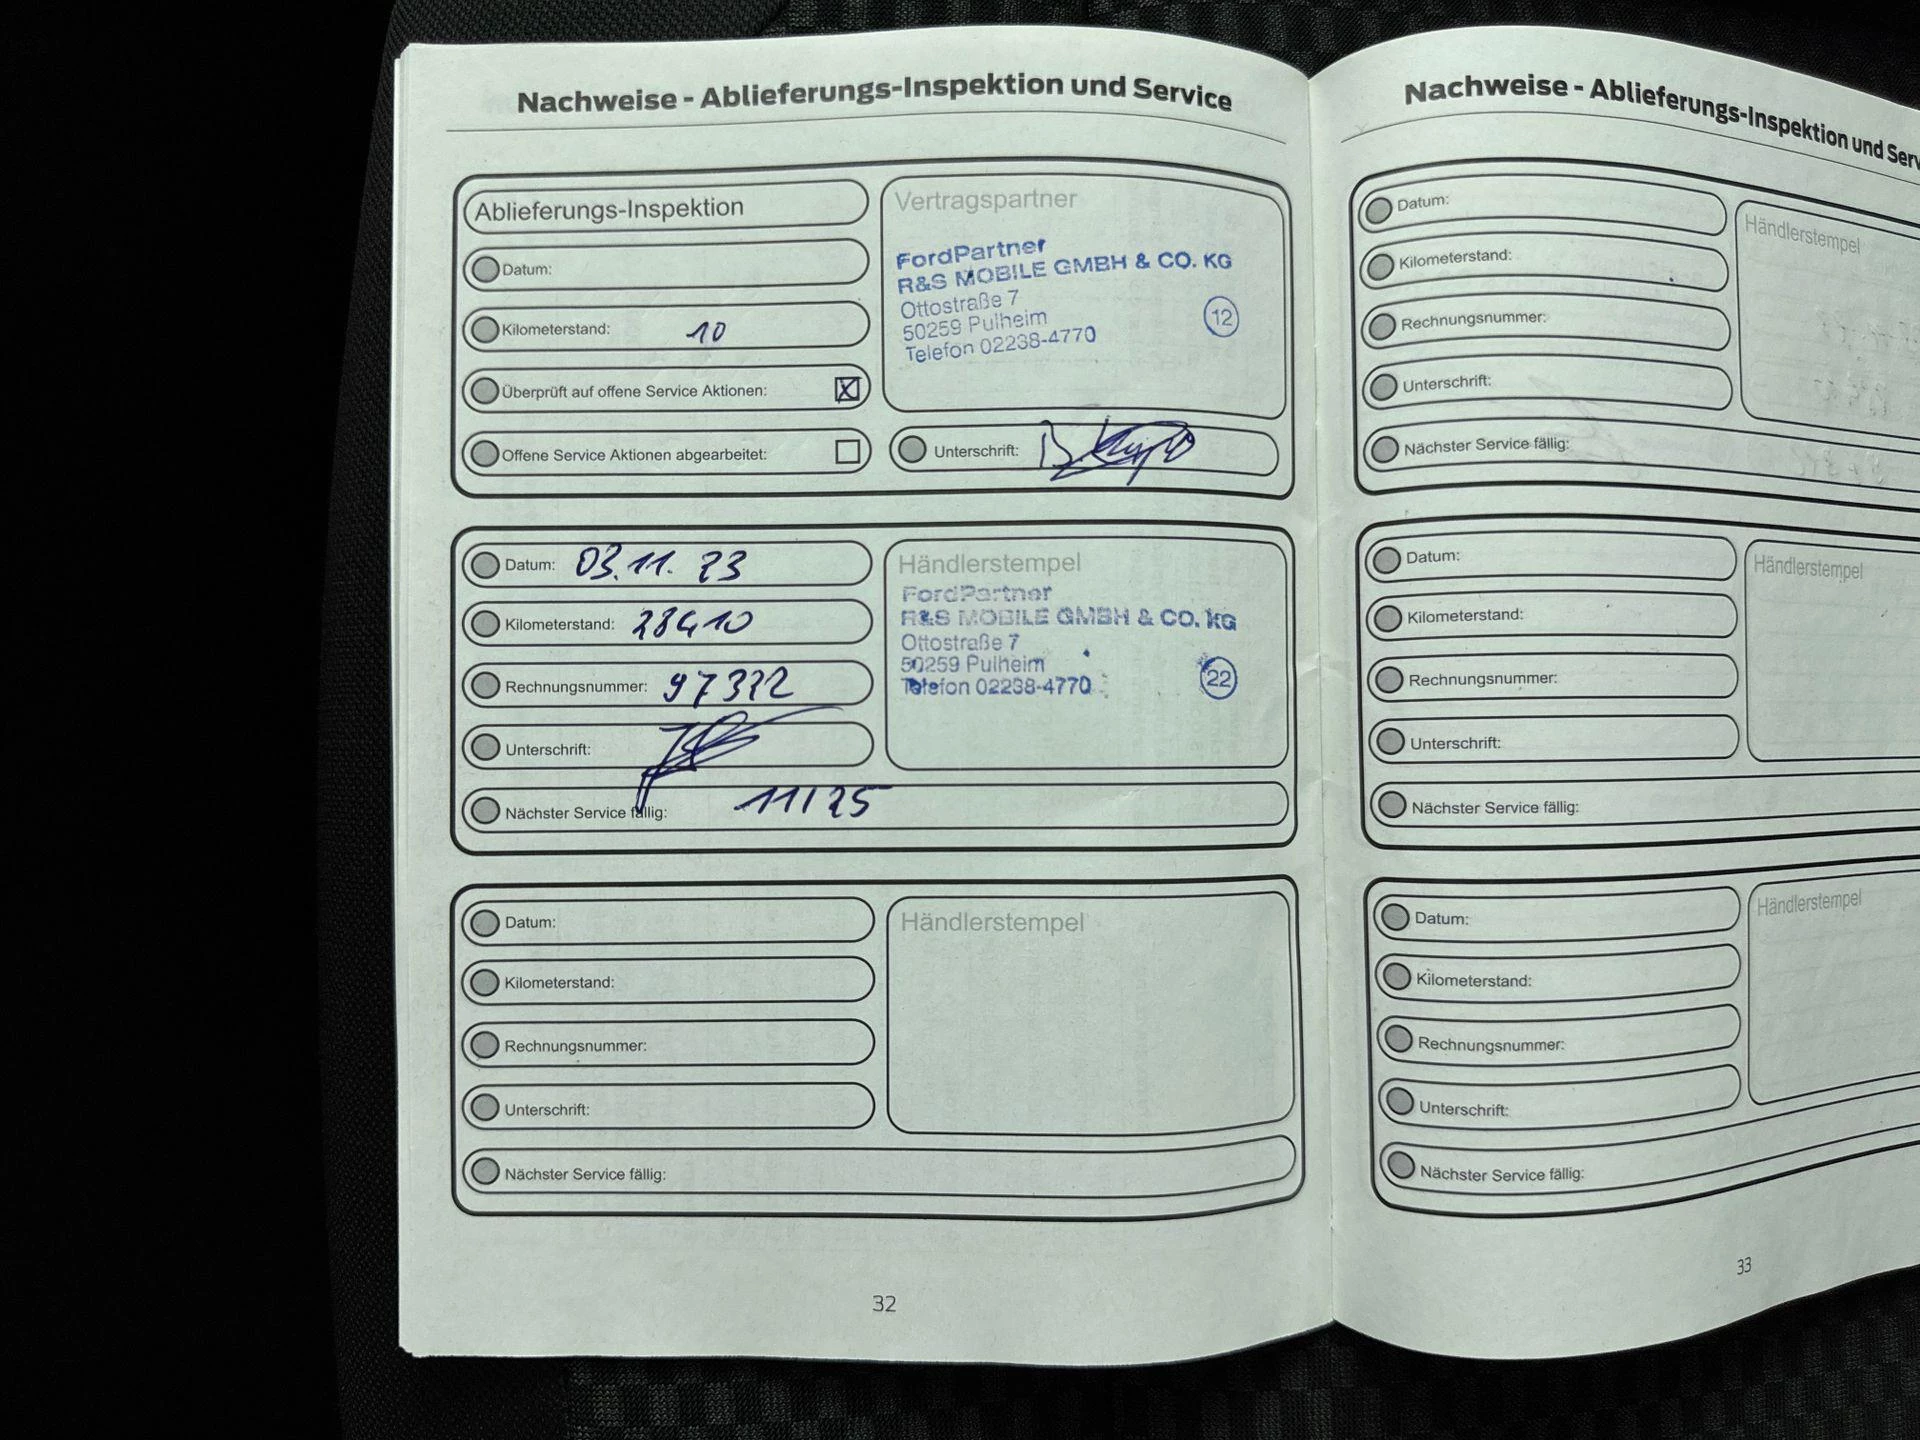 Nachweise - Ablieferungs-Inspektion und Service
Ablieferungs-Inspektion
Datum:
Kilometerstand: 10
Überprüft auf offene Service Aktionen: X
Offene Service Aktionen abgearbeitet:
Vertragspartner
FordPartner
R&S MOBILE GMBH & CO. KG
Ottostraße 7
50259 Pulheim
Telefon 02238-4770
12
Unterschrift:
Datum: 03.11.23
Kilometerstand: 28410
Rechnungsnummer:
Unterschrift:
Nächster Service fällig: 11/25
Händlerstempel
FordPartner
R&S MOBILE GMBH & CO. KG
Ottostraße 7
50259 Pulheim
Telefon 02238-4770
22
Datum:
Kilometerstand:
Rechnungsnummer:
Unterschrift:
Nächster Service fällig:
Händlerstempel
32
Nachweise - Ablieferungs-Inspektion und Serv
Datum:
Kilometerstand:
Rechnungsnummer:
Unterschrift:
Nächster Service fällig:
Händlerstempel
Datum:
Kilometerstand:
Rechnungsnummer:
Unterschrift:
Nächster Service fällig:
Händlerstempel
Datum:
Kilometerstand:
Rechnungsnummer:
Unterschrift:
Nächster Service fällig:
Händlerstempel
33